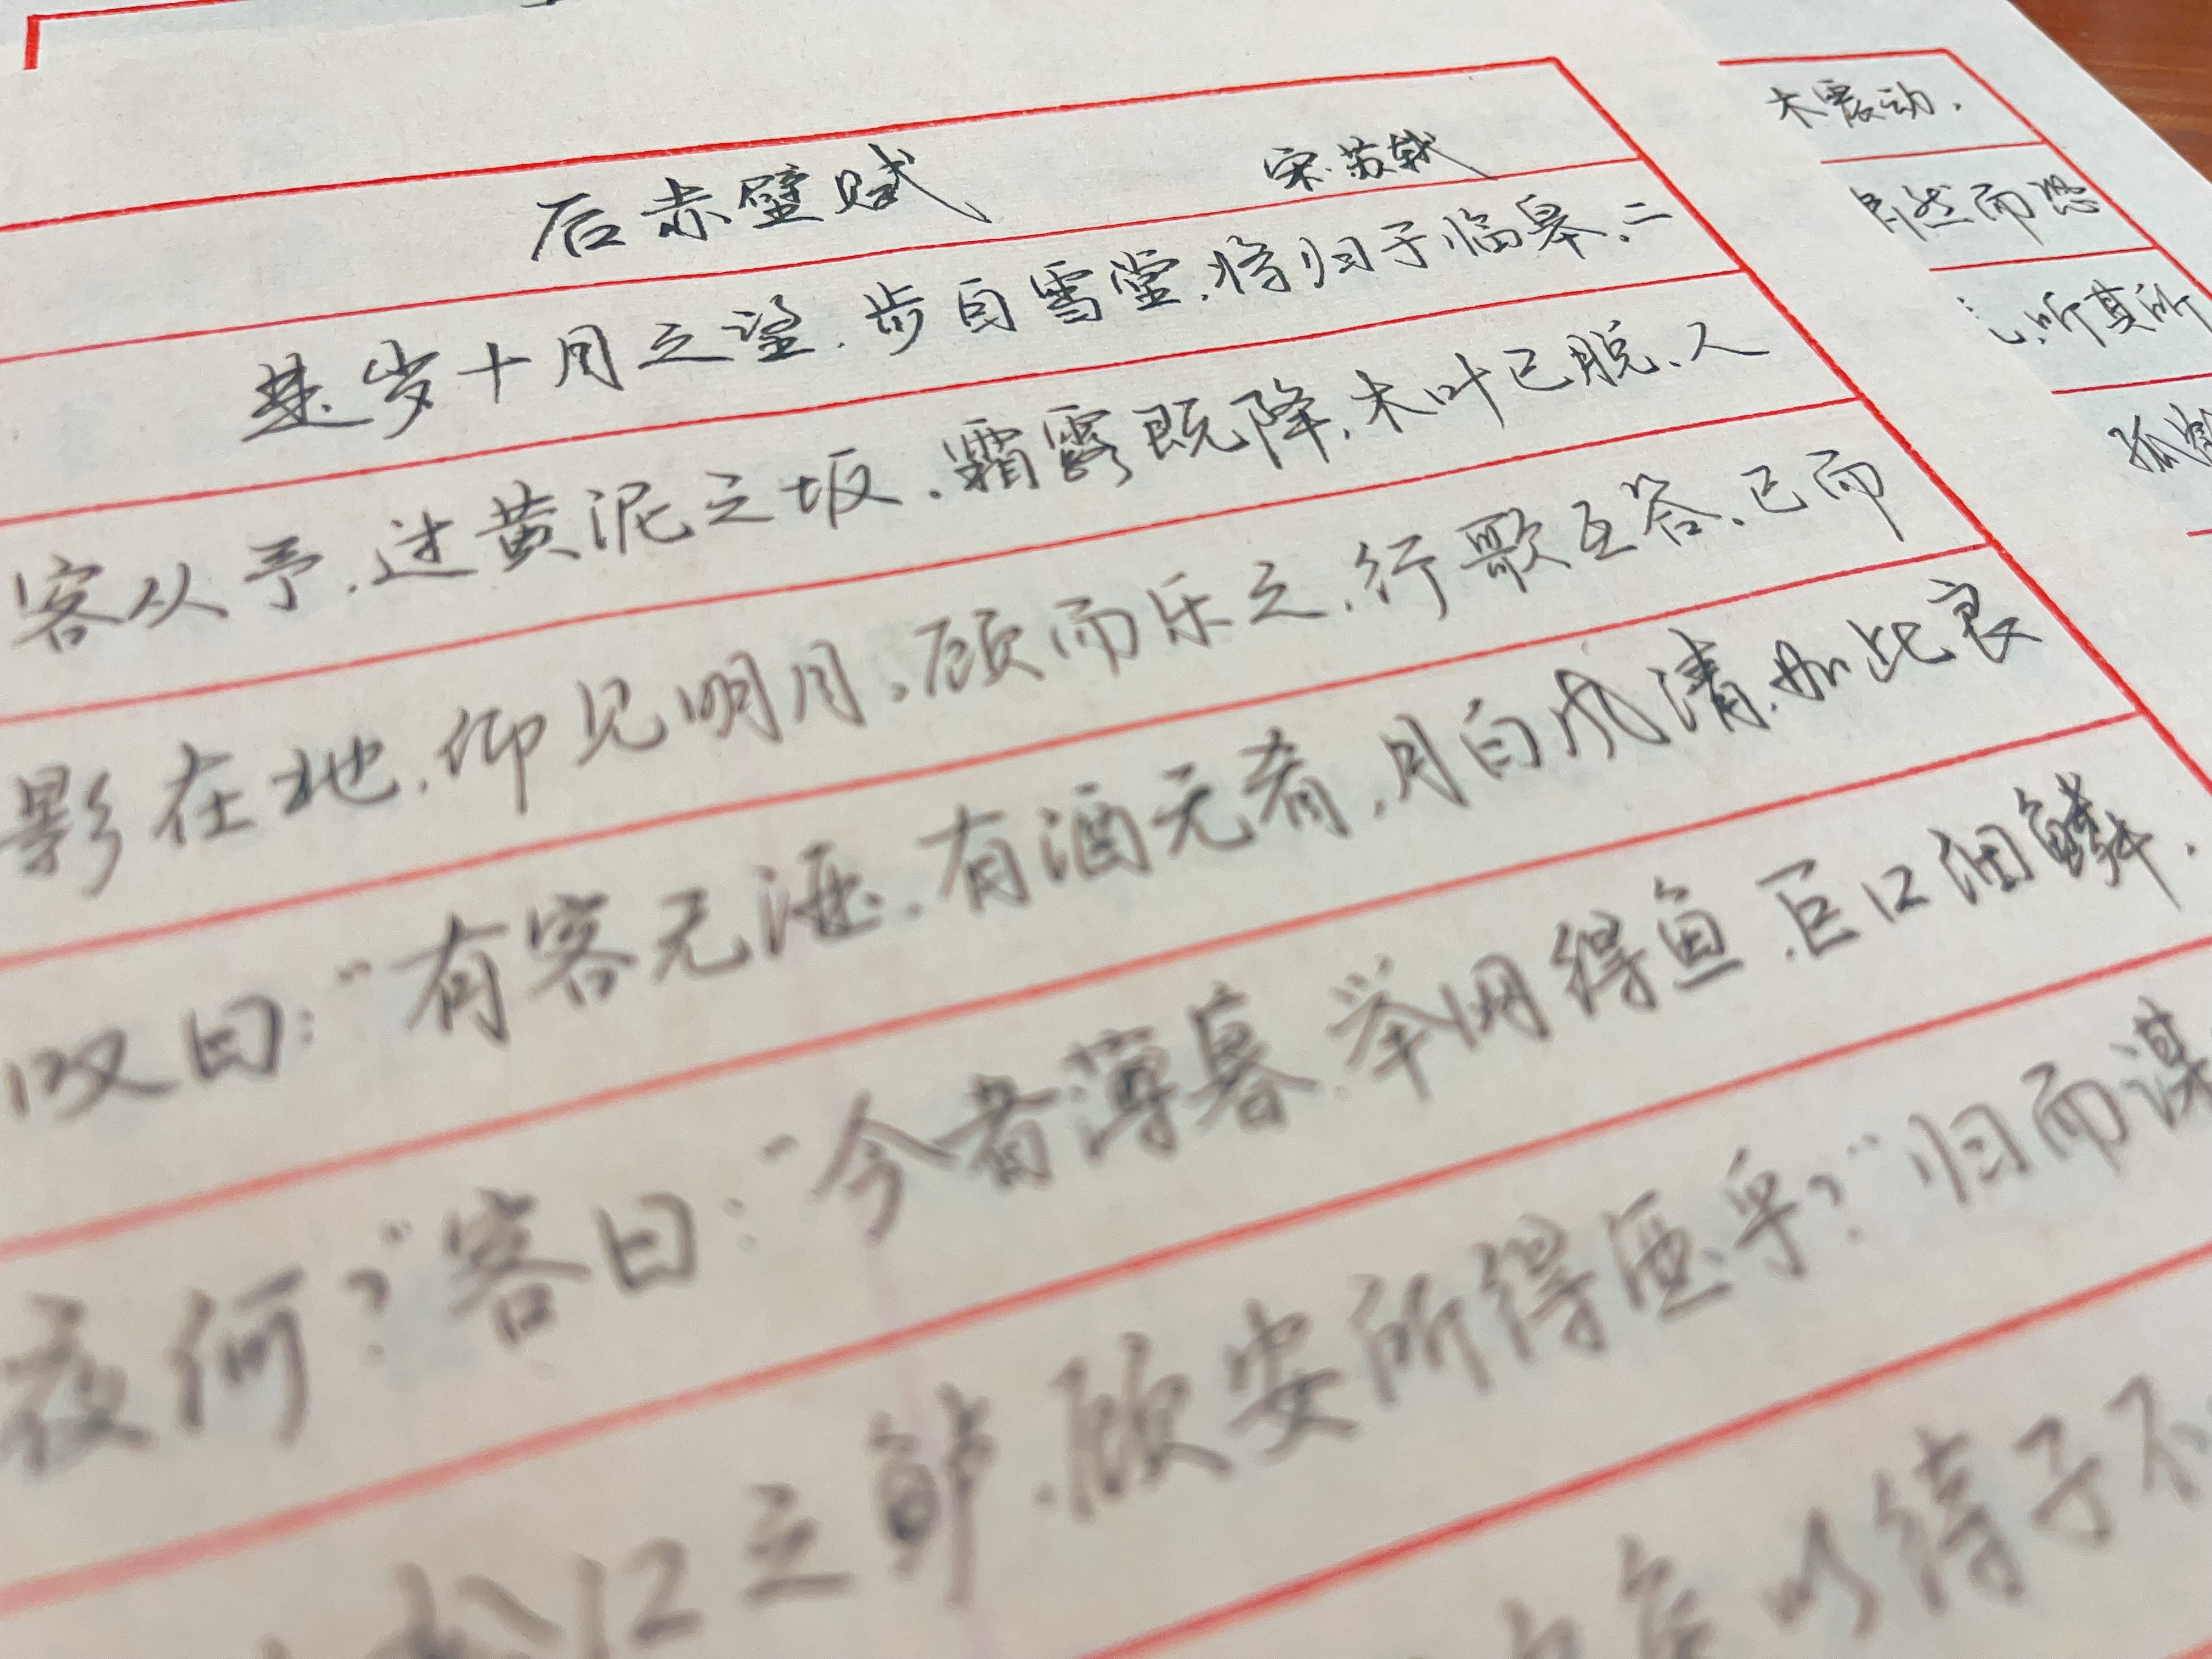 后赤壁赋 宋·苏轼
是岁十月之望,步自雪堂,将归于临皋,二
客从予,过黄泥之坂,霜露既降,木叶已脱,人
影在地,仰见明月,顾而乐之,行歌互答,已而
叹曰:“有客无酒,有酒无肴,月白风清,如此良
夜何?”客曰:“今者薄暮,举网得鱼,巨口细鳞,
松江之鲈,顾安所得酒乎?”归而谋
以待子不
木震动,
然而恐
听其所
孤